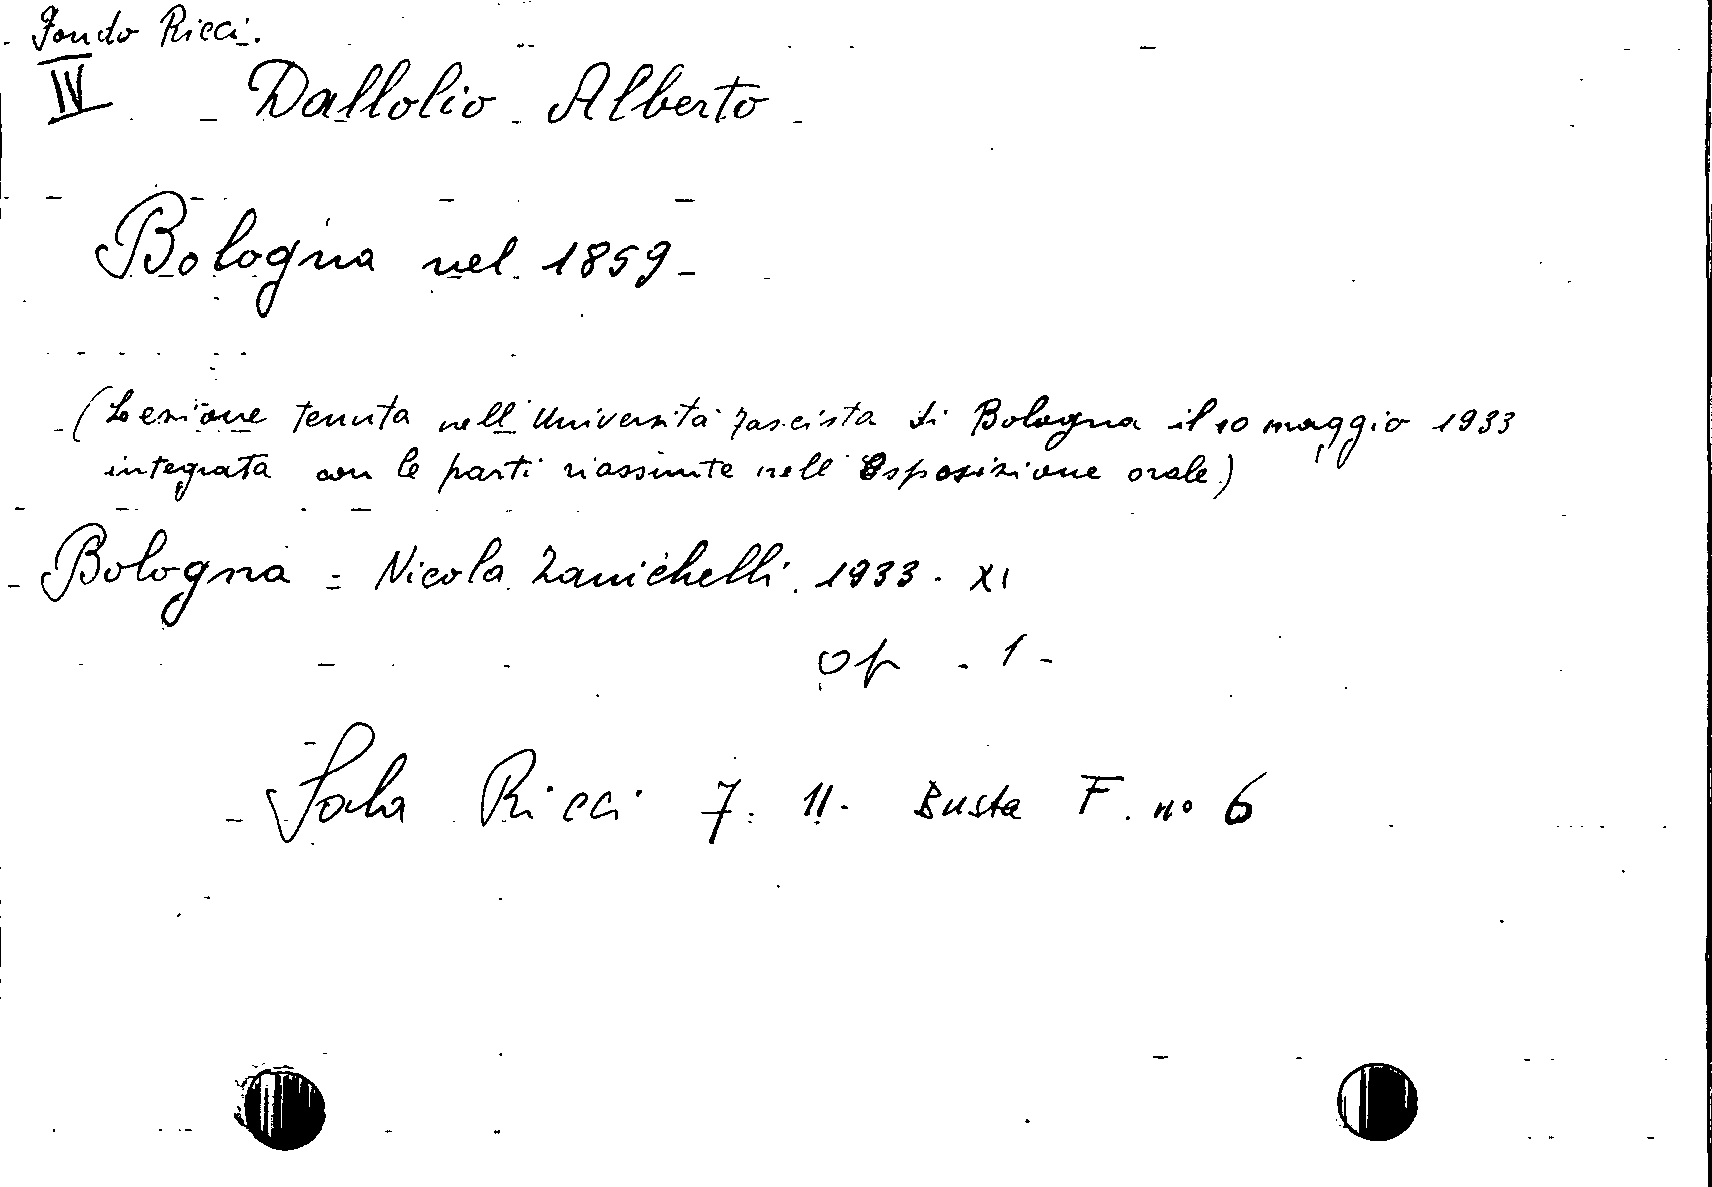 Fondo Ricci.
IV Dallolio Alberto
Bologna nel 1859-
(Lezione tenuta nell'Università fascista di Bologna il 10 maggio 1933
integrata con le parti riassunte nell'Esposizione orale)
Bologna = Nicola Zanichelli. 1933. XI
op - 1 -
Sala Ricci 7. 11. Busta F. nº 6